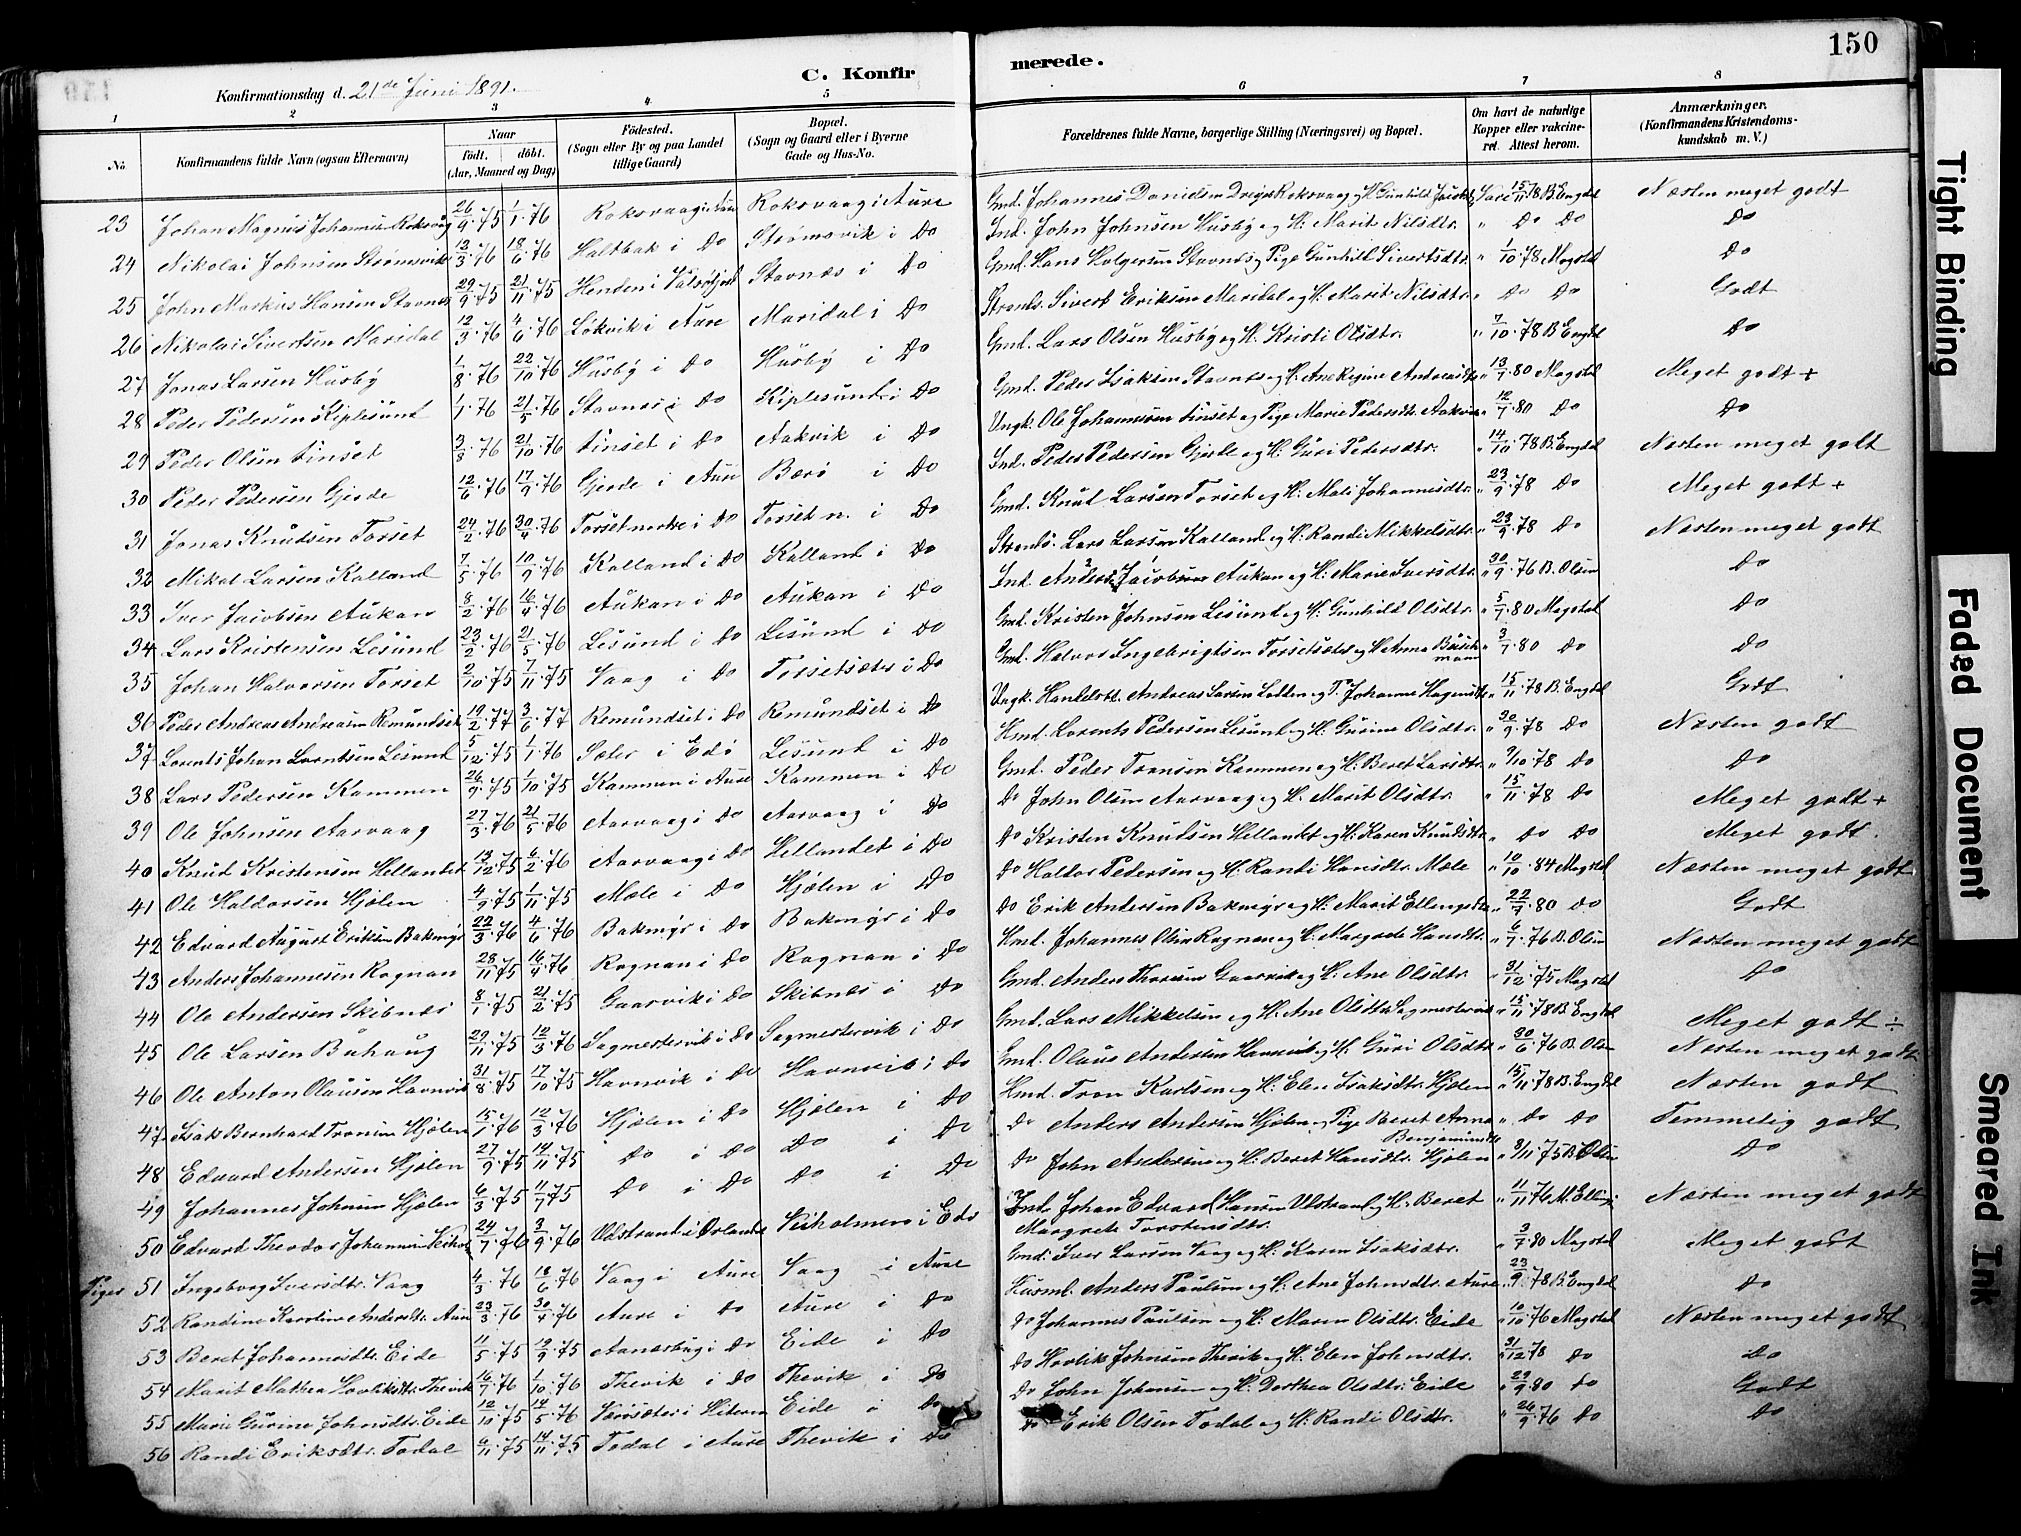 150
C. Konfirmerede.
Konfirmationsdag d. 21de Juni 1891.
1 2 3 4 5 6 7 8
No
Konfirmandens fulde Navn (ogsaa Efternavn)
Naar
födt. döbt.
(Aar, Maaned og Dag)
Födested.
(Sogn eller By og paa Landet
tillige Gaard)
Bopæl.
(Sogn og Gaard eller i Byerne
Gade og Hus-No.
Forældrenes fulde Navne, borgerlige Stilling (Næringsvei) og Bopæl.
Om havt de naturlige
Kopper eller vakcineret.
Attest herom.
Anmærkninger.
(Konfirmandens Kristendomskundskab
m. V.)
23 Johan Magnus Johannesen Roksvåg 26/9.75 1/1.76 Roksvaag i Aure Roksvaag i Aure Gmd. Johannes Danielsen Roksvaag og H. Gunhild Vacc 15/11.78 B. Engdal Næsten meget godt
24 Nikolai Johnsen Strømsvik 12/3.76 18/6.76 Haltbak i Do Strømsvik i Do Ind. John Johnsen Husby og H: Marit Nilsdtr. " Do Do Do
25 John Markus Hansen Stavnes 29/9.75 21/11.75 Henden i Valsøfjord Stavnæs i Do Gmd. Hans Holgersen Stavnes og Pige Gunhild Sivertsdtr. " 1/10.78 Magstad Do
26 Nikolai Sivertsen Maridal 12/3.76 4/6.76 Løkvik i Aure Maridal i Do Strands. Sivert Eriksen Maridal og H. Marit Nilsdtr. " Do Do Godt
27 Jonas Larsen Husby 1/8.76 22/10.76 Husby i Do Husby i Do Gmd. Lars Olsen Husby og H. Kristi Olsdtr. " 7/10.78 B Engdal Do
28 Peder Pedersen Kiplesund 1/1.76 21/5.76 Stavnes i Do Kiplesund i Do Gmd. Peder Isaksen Stavnes og H. Ane Regine Andreasdtr " 13/7.80 Magstad Meget godt +
29 Peder Olsen Tinset 3/8.76 21/10.76 Tinset i Do Aakvik i Do Ungk. Ole Johannesen Tinset og Pige Marie Pedersdtr. Aakvik " 12/7.80 Do Do
30 Peder Pedersen Gjerde 12/6.76 17/9.76 Gjerde i Aure Bærø i Do Ind. Peder Pedersen Gjerde og H. Guri Pedersdtr. " 14/10.78 B. Engdal Næsten meget godt
31 Jonas Knudsen Torset 24/2.76 30/4.76 Torset nordre i Do Torset n. i Do Gmd. Knud Larsen Torset og H. Mali Johannesdtr. " 23/9.78 Do Meget godt +
32 Mikal Larsen Kalland 7/5.76 10/9.76 Kalland i Do Kalland i Do Strands. Lars Larsen Kalland og H. Randi Mikkelsdtr. " 23/9.78 Do Næsten meget godt
33 Iver Jacobsen Aukan 8/2.76 16/4.76 Aukan i Do Aukan i Do Ind. Anders Jacobsen Aukan og H. Marie Iversdtr. " 30/9.76 B. Olsen Do
34 Lars Kristensen Lesund 23/2.76 21/5.76 Lesund i Do Lesund i Do Gmd. Kristen Johnsen Lesund og H. Gunhild Olsdtr. " 5/7.80 Magstad Do
35 Johan Halvorsen Torset 2/10.75 7/11.75 Vaag i Do Torsetsæter i Do Gmd. Halvor Ingebrigtsen Torsetsæter og H. Anna Buschmann " 3/7.80 Do Do
36 Peder Andreas Andreasen Remundset 19/2.77 3/6.77 Remundset i Do Remundset i Do Ungk. Handelsbt. Andreas Larsen og P. Johanne " 15/11.78 B. Engdal Godt
37 Lorents Johan Lorntsen Lesund 5/12.75 1/1.76 Sæter i Edø Lesund i Do Hmd. Lorents Pedersen Lesund og H: Gurine Olsdtr. " 30/9.78 Do Næsten godt
38 Lars Pedersen Kammen 26/9.75 1/10.75 Kammen i Aure Kammen i Do Gmd. Peder Tronsen Kammen og H. Beret Larsdtr. " 9/10.78 Do Do
39 Ole Johnsen Aarvaag 27/3.76 21/5.76 Aarvaag i Do Aarvaag i Do Do John Olsen Aarvaag og H. Marit Olsdtr. " 15/11.78 Do Meget godt +
40 Knud Kristensen Hellandet 13/12.75 6/2.76 Aarvaag i Do Hellandet i Do Do Kristen Knudsen Hellandet og H. Karen Knudsdtr. " Do Do Meget godt.
41 Ole Haldorsen Hjølen 4/9.75 1/11.75 Mæle i Do Hjølen i Do Do Haldor Pedersen og H. Randi Hansdtr. Mæle " 10/10.84 Magstad Næsten meget godt
42 Edvard August Eriksen Bakmyr 22/3.76 4/6.76 Bakmyr i Do Bakmyr i Do Do Erik Andersen Bakmyr og H. Marit Ellingsdtr. " 22/7.80 Do Godt
43 Anders Johannesen Rognan 28/11.75 16/4.76 Rognan i Do Rognan i Do Hmd. Johannes Olsen Rognan og H. Margrete Hansdtr. " 6/7.76 B. Olsen Næsten meget godt
44 Ole Andersen Skibnes 8/1.75 21/2.75 Gaarvik i Do Skibnes i Do Gmd. Anders Thoresen Gaarvik og H. Ane Olsdtr. " 31/12.75 Magstad Do
45 Ole Larsen Buhaug 29/11.75 12/3.76 Sagmestervik i Do Sagmestervik i Do Gmd. Lars Mikkelsen og H. Ane Olsdtr. Sagmestervik " 15/11.78 B. Engdal Meget godt ÷
46 Ole Anton Olausen Havnvik 31/8.75 17/10.75 Havnvik i Do Havnvik i Do Gmd. Olaus Andersen Havnvik og H: Guri Olsdtr. " 30/6.76 B. Olsen Næsten meget godt
47 Isak Bernhard Tronsen Hjølen 15/1.76 12/3.76 Hjølen i Do Hjølen i Do Hmd. Tron Karlsen og H: Elen Isaksdtr. Hjølen " 15/11.78 B. Engdal Næsten godt
48 Edvard Andersen Hjølen 27/9.75 14/11.75 Do i Do Do i Do Do Anders Andersen Hjølen og Pige Beret Anna Benjaminsdtr " Do Do Temmelig godt
49 Johannes Johnsen Hjølen 6/3.75 11/7.75 Do i Do Do i Do Do John Andersen og H: Beret Hansdtr. Hjølen " 8/11.75 B. Olsen Do
50 Edvard Theodor Johansen Veiholm 24/7.76 3/9.76 Uldstrand i Ørlandet Veiholmen i Edø Ind. Johan Edvard Hansen Uldstrand og H: Beret " 11/11.76 M. Næsten meget godt
Margrete Torstensdtr.
Piger 51 Ingeborg Iversdtr. Vaag 4/3.76 18/6.76 Vaag i Aure Vaag i Aure Gmd: Iver Larsen Vaag og H: Karen Isaksdtr. " 3/7.80 Magstad Meget godt
52 Randine Karoline Andersdtr. Aure 23/3.76 30/4.76 Aure i Do Aure i Do Husmd. Anders Paulsen og H: Ane Johnsdtr. Aure " 23/9.78 B. Engdal Do
53 Beret Johannesdtr. Eide 11/5.75 19/9.75 Aanesbug i Do Eide i Do Do Johannes Paulsen og H: Maren Olsdtr. Eide " 10/10.76 Magstad Næsten meget godt
54 Marit Mathea Hovliksdtr. Thevik 16/7.76 1/10.76 Thevik i Do Thevik i Do Do Hovlik Johnsen Thevik og H. Elen Johnsdtr. " 31/12.78 Do Do
55 Marie Gurine Johnsdtr. Eide 12/10.75 14/5.76 i Hitteren Eide i Do Do John Johnsen og H: Dorthea Olsdtr. Eide " 29/9.80 Do Godt
56 Randi Eriksdtr. Todal 6/11.75 14/11.75 Todal i Aure Thevik i Do Do Erik Olsen Todal og H: Randi Olsdtr. " 26/9.76 Do Do
Tight Binding
Faded Document
Smeared Ink